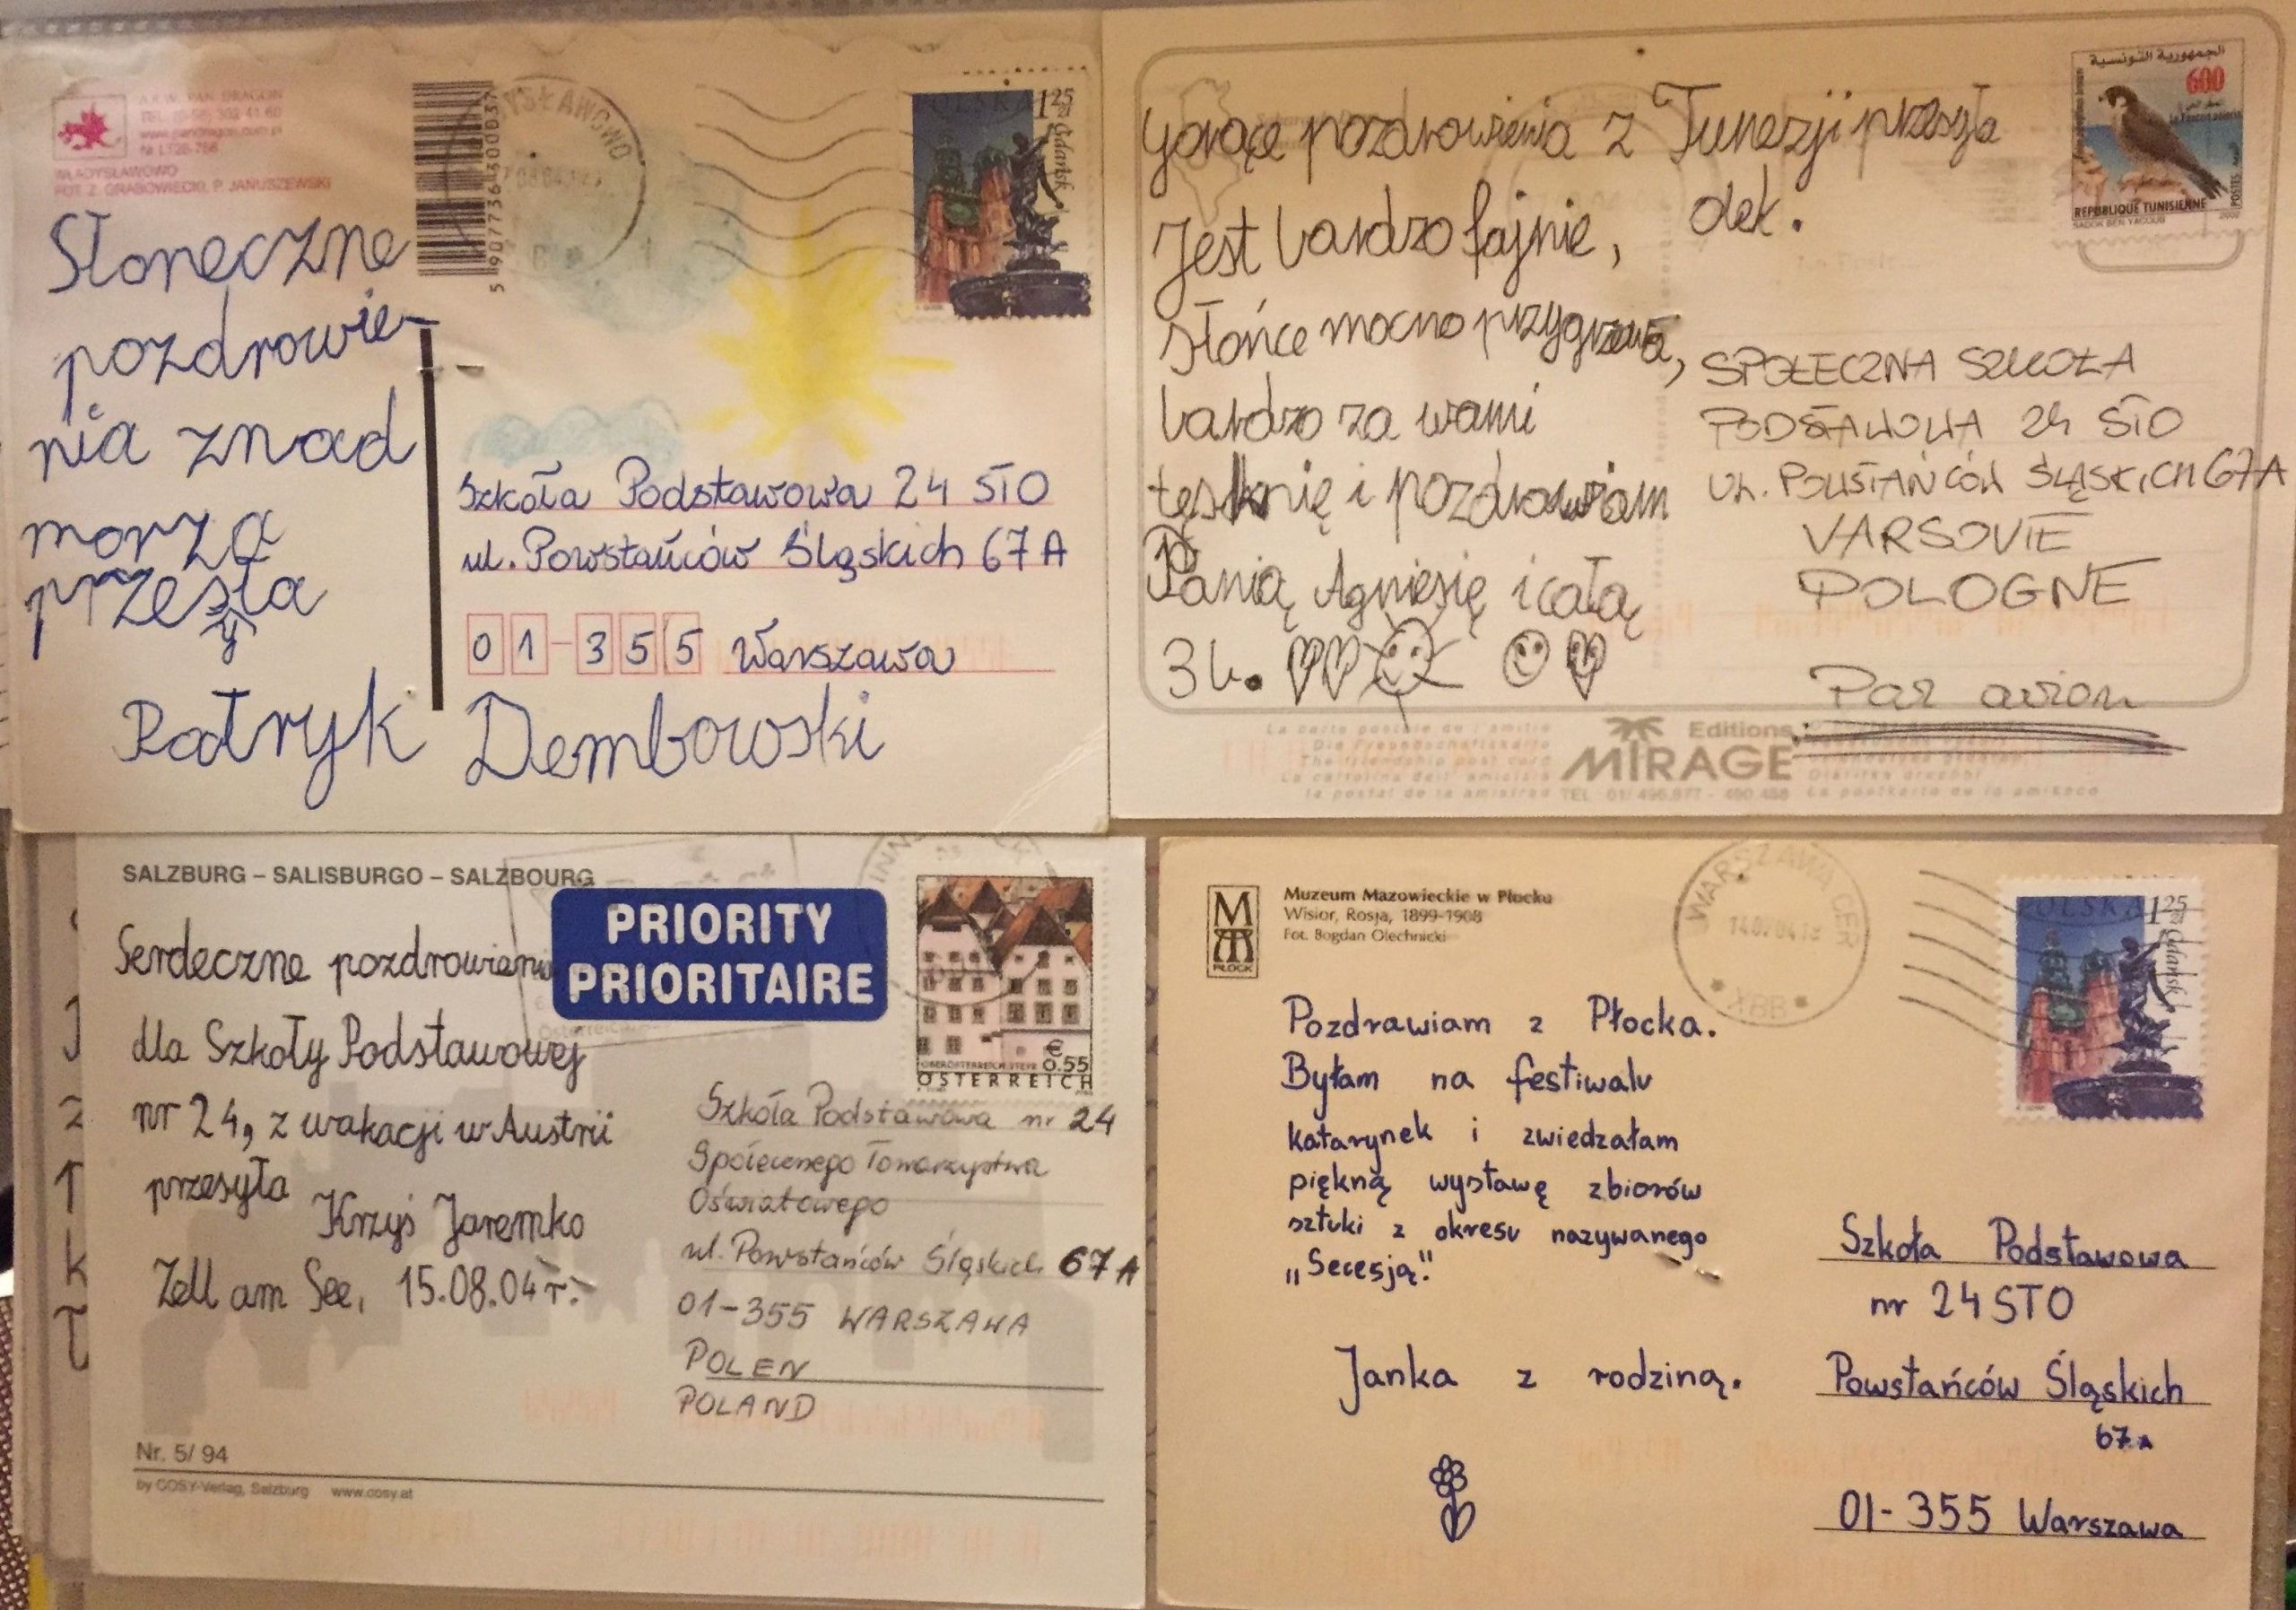 WŁADYSŁAWOWO
FOT. Z. GRABOWIECKI, P. JANUSZEWSKI
POLSKA 1 25
Gdańsk
Słoneczne
pozdrowie-
nia znad
morza
przesła
y
Patryk Dembowski
Szkoła Podstawowa 24 STO
ul. Powstańców Śląskich 67 A
01-355 Warszawa
الجمهورية التونسية
600
REPUBLIQUE TUNISIENNE
2002
gorące pozdrowienia z Tunezji przesyła
olek.
Jest bardzo fajnie,
słońce mocno przygrzewa,
bardzo za wami
tęsknię i pozdrawiam
Panią Agniesię i całą
3b.
SPOŁECZNA SZKOŁA
PODSTAWOWA 24 STO
UL. POWSTAŃCÓW ŚLĄSKICH 67A
VARSOVIE
POLOGNE
Par avion
Editions
MIRAGE
TEL 01/ 496.877 - 490.488
SALZBURG – SALISBURGO – SALZBOURG
PRIORITY
PRIORITAIRE
€
0.55
ÖSTERREICH
Serdeczne pozdrowienia
dla Szkoły Podstawowej
nr 24, z wakacji w Austrii
przesyła
Krzyś Jaremko
Zell am See, 15.08.04 r.
Szkoła Podstawowa nr 24
Społecznego Towarzystwa
Oświatowego
ul. Powstańców Śląskich 67 A
01-355 WARSZAWA
POLEN
POLAND
Nr. 5/ 94
by COSY-Verlag, Salzburg www.cosy.at
M
PŁOCK
Muzeum Mazowieckie w Płocku
Wisior, Rosja, 1899-1908
Fot. Bogdan Olechnicki
WARSZAWA CER
XBB
POLSKA 1 25
Gdańsk
Pozdrawiam z Płocka.
Byłam na festiwalu
katarynek i zwiedzałam
piękną wystawę zbiorów
sztuki z okresu nazywanego
„Secesją."
Janka z rodziną.
Szkoła Podstawowa
nr 24 STO
Powstańców Śląskich
67 A
01-355 Warszawa